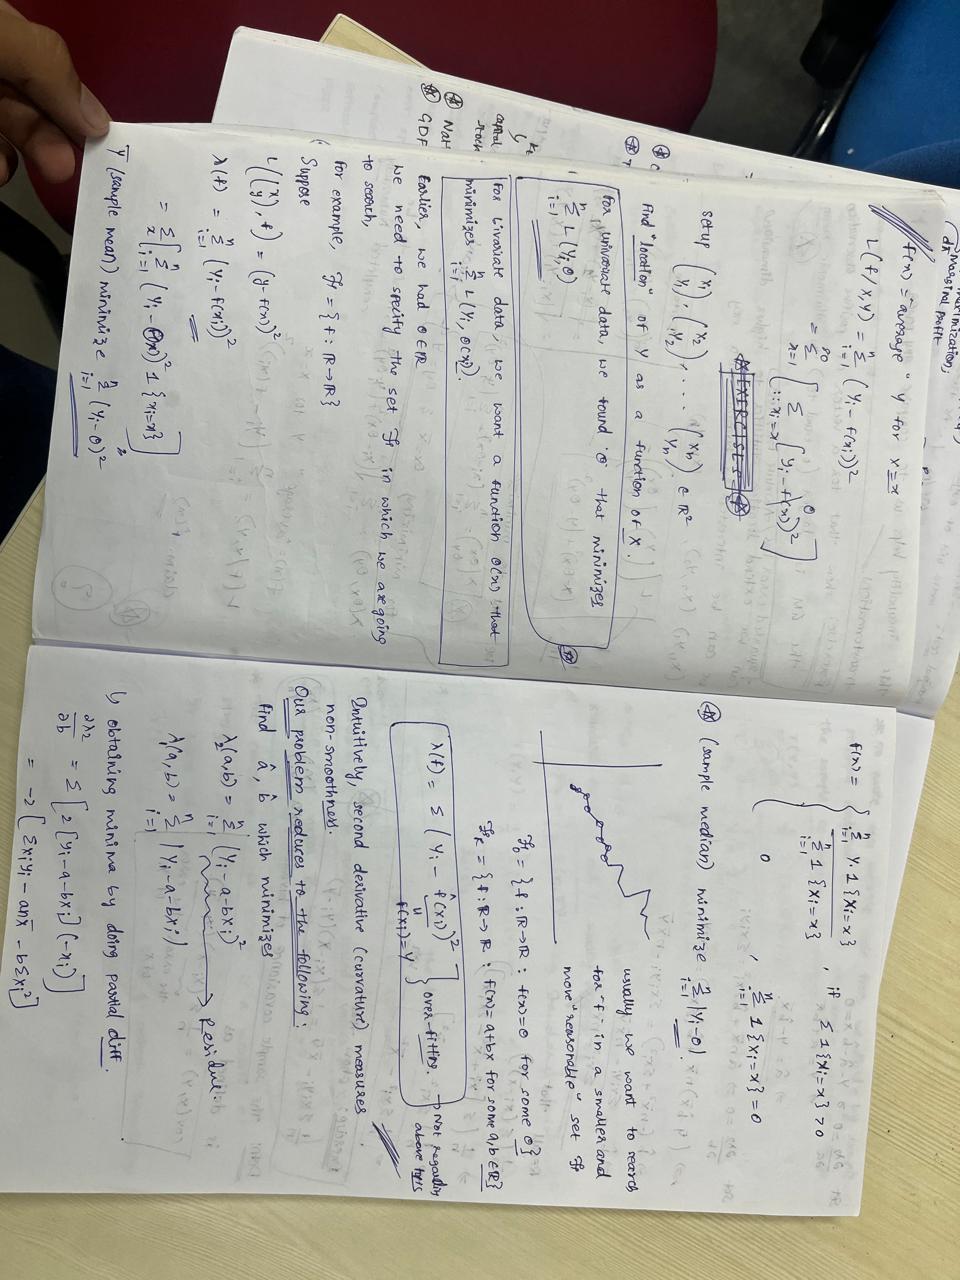 Marginal profit
f(x) = "average" y for X = x
L(f/x,y) = Σ_{i=1}^{n} (Yi - f(xi))²
= Σ_{x=1}^{∞} [ Σ_{i: xi=x} [yi - f(x)]² ]
θ
EXERCISES
setup (X1 Y1), (X2 Y2), .... (Xn Yn) ∈ ℝ²
Find "location" of Y as a function of X.
For univariate data, we found 'θ' that minimizes
Σ_{i=1}^{n} L(Yi, θ)
For bivariate data, we want a function θ(x) that
minimizes Σ_{i=1}^{n} L(Yi, θ(xi)).
Earlier, we had θ∈ℝ
we need to specify the set ℱ in which we are going
to search,
For example, ℱ = {f : ℝ→ℝ}
Suppose
L((x y), f) = (y - f(x))²
λ(f) = Σ_{i=1}^{n} (Yi - f(xi))²
= Σ_x [ Σ_{i=1}^{n} (Yi - θ(x))² 1{xi=x} ]
Ȳ (sample mean) minimize Σ_{i=1}^{n} (Yi - θ)²
capital
stock
GDP
f(x) = { Σ_{i=1}^{n} Y. 1{Xi=x} / Σ_{i=1}^{n} 1{Xi=x} , if Σ1{Xi=x}>0
0 , Σ_{i=1}^{n} 1{Xi=x}=0
(sample median) minimize Σ_{i=1}^{n} |Yi-θ|.
usually we want to search
for "f" in a smaller and
more "reasonable" set ℱ
ℱ₀ = {f : ℝ→ℝ : f(x)=θ for some θ}
ℱ_R = {f : ℝ→ℝ : f(x)=a+bx for some a,b ∈ℝ}
λ(f) = Σ (Yi - f̂(xi))² } over-fitting. → Not regarding
above
f(xi)=Y
Intuitively, second derivative (curvature) measures
non-smoothness.
Our problem reduces to the following:
Find â, b̂ which minimizes
λ₂(a,b) = Σ_{i=1}^{n} (Yi-a-bxi)² → Residue.
λ₁(a,b) = Σ_{i=1}^{n} |Yi-a-bxi|
↳ obtaining minima by doing partial diff.
∂λ₂/∂b = Σ [2[yi-a-bxi](-xi)]
= -2 [Σxiyi - anx̄ - bΣxi²]